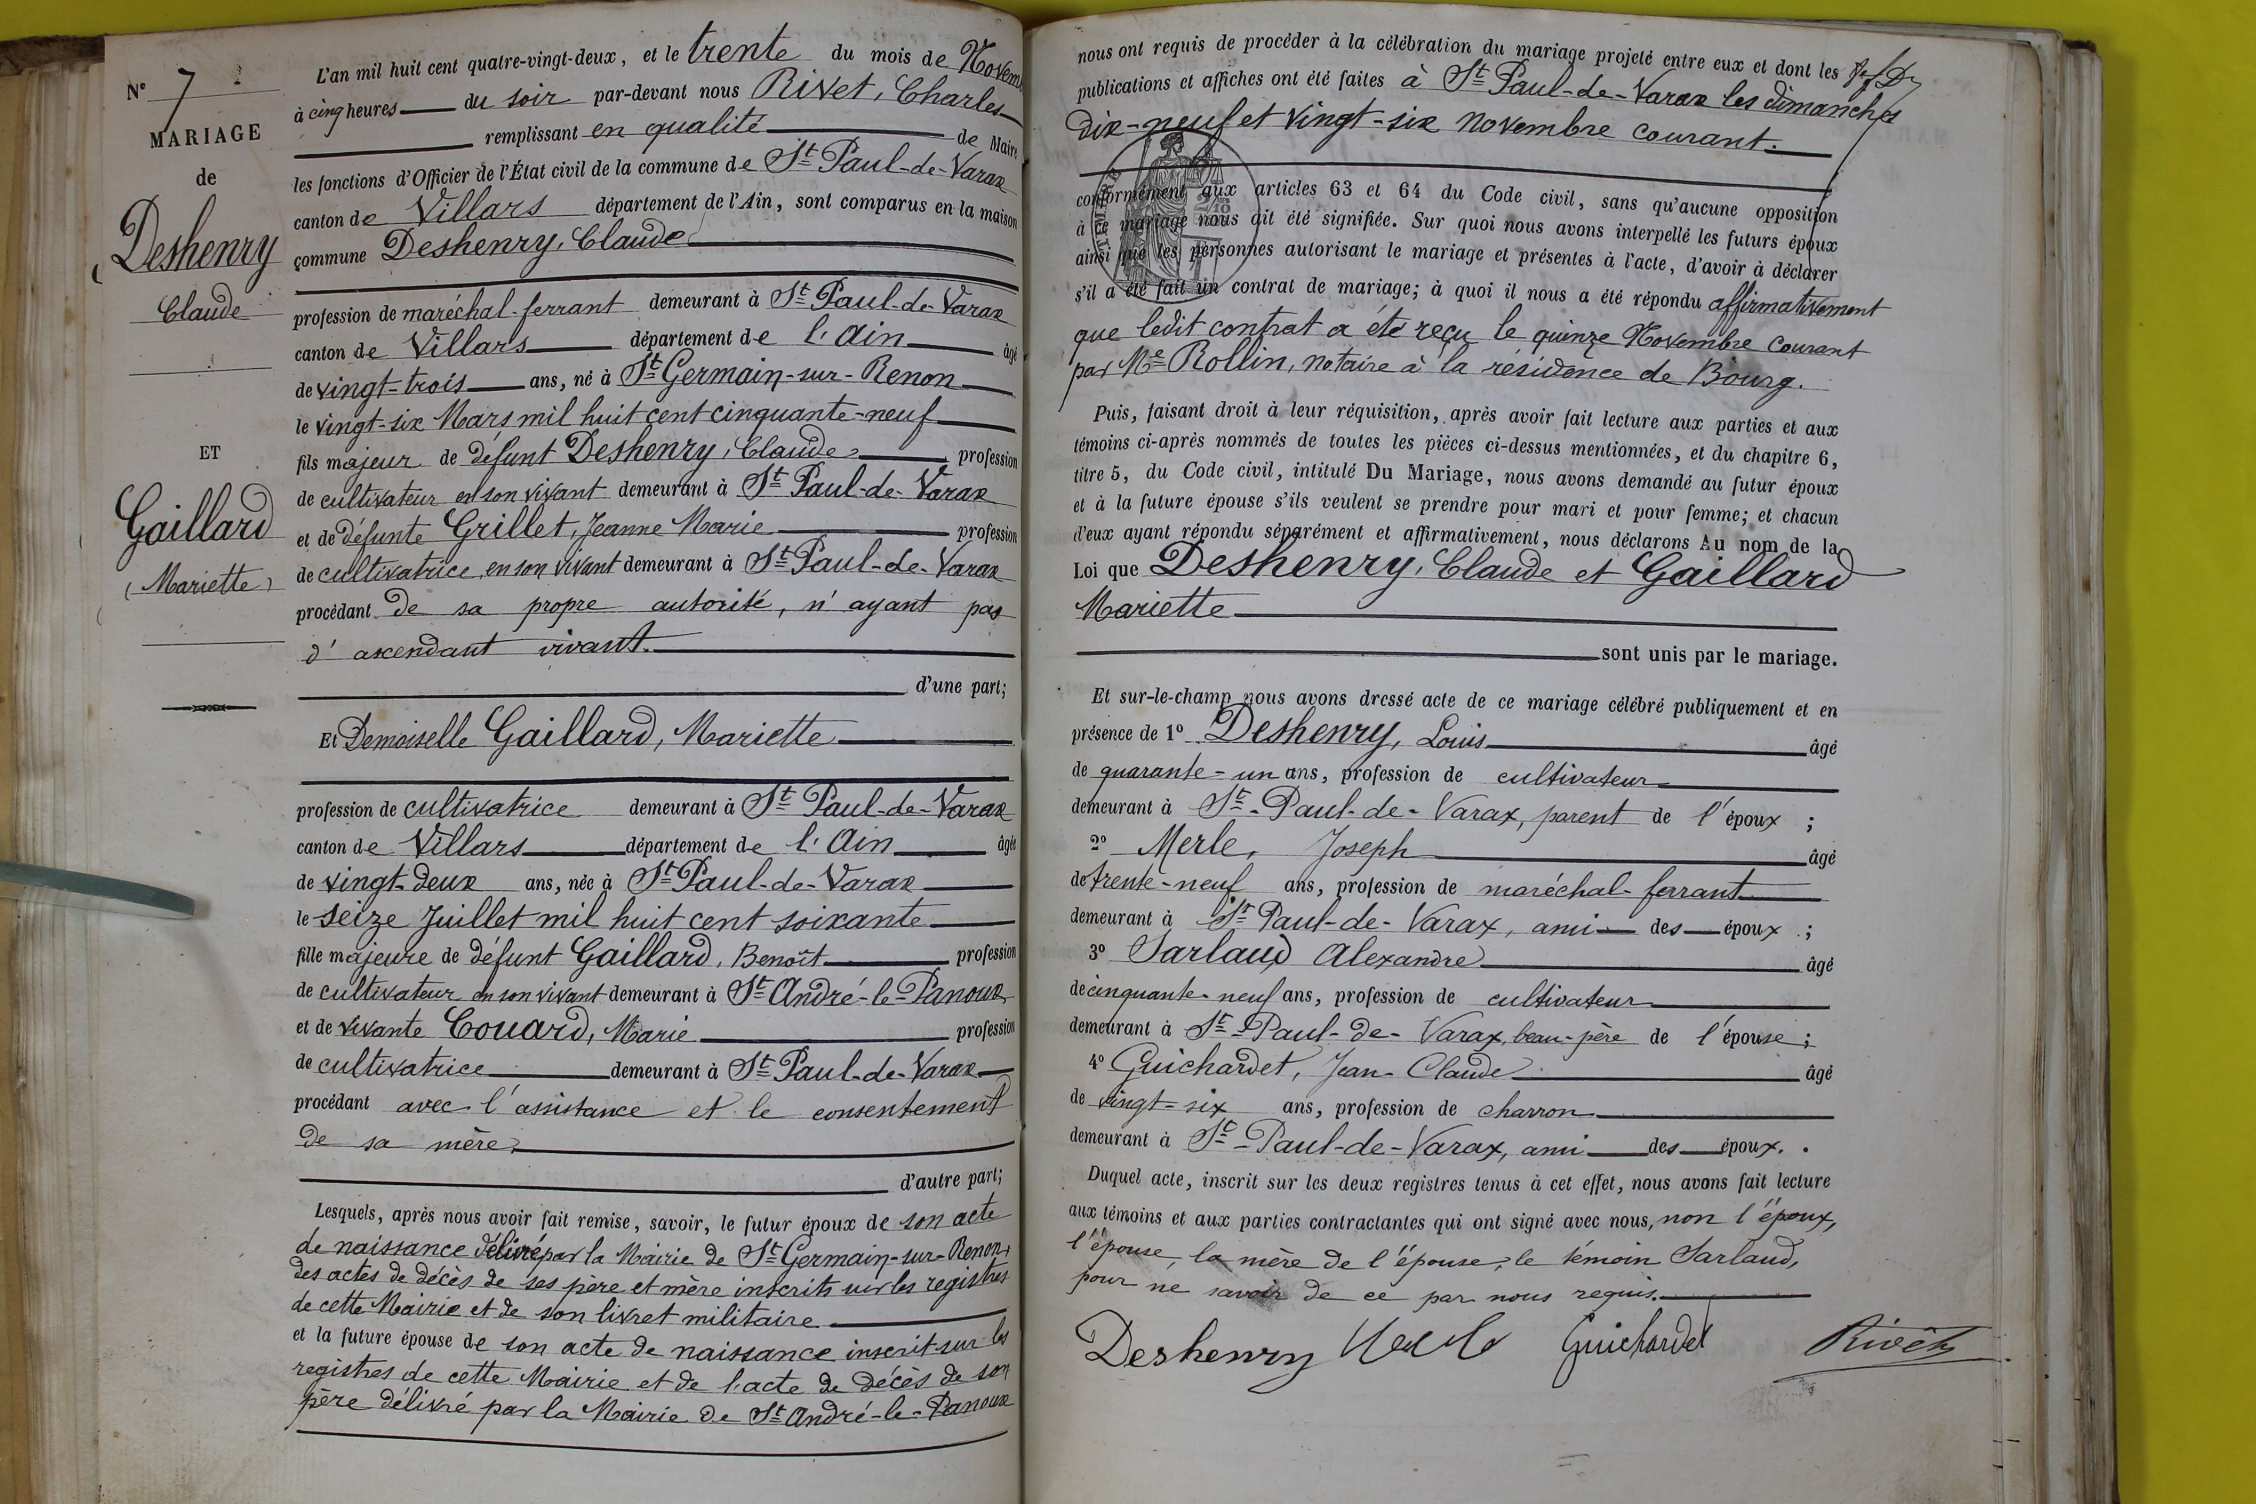 N° 7
MARIAGE
de
Deshenry
Claude
ET
Gaillard
(Mariette)
L'an mil huit cent quatre-vingt-deux, et le trente du mois de Novem
à cinq heures du soir par-devant nous Rivet, Charles
remplissant en qualité de Maire
les fonctions d'Officier de l'État civil de la commune de St Paul-de-Varax
canton de Villars département de l'Ain, sont comparus en la maison
commune Deshenry, Claude
profession de maréchal-ferrant demeurant à St Paul-de-Varax
canton de Villars département de l'Ain âgé
de vingt-trois ans, né à St Germain-sur-Renon
le vingt-six Mars mil huit cent cinquante-neuf
fils majeur de défunt Deshenry, Claude profession
de cultivateur en son vivant demeurant à St Paul-de-Varax
et de défunte Grillet, Jeanne Marie profession
de cultivatrice en son vivant demeurant à St Paul-de-Varax
procédant de sa propre autorité, n'ayant pas
d'ascendant vivant.
d'une part;
Et Demoiselle Gaillard, Mariette
profession de cultivatrice demeurant à St Paul-de-Varax
canton de Villars département de l'Ain âgée
de vingt-deux ans, née à St Paul-de-Varax
le seize Juillet mil huit cent soixante
fille majeure de défunt Gaillard, Benoît profession
de cultivateur en son vivant demeurant à St André-le-Panoux
et de vivante Couard, Marie profession
de cultivatrice demeurant à St Paul-de-Varax
procédant avec l'assistance et le consentement
de sa mère.
d'autre part;
Lesquels, après nous avoir fait remise, savoir, le futur époux de son acte
de naissance délivré par la Mairie de St Germain-sur-Renon,
des actes de décès de ses père et mère inscrits sur les registres
de cette Mairie et de son livret militaire
et la future épouse de son acte de naissance inscrit sur les
registres de cette Mairie et de l'acte de décès de son
père délivré par la Mairie de St André-le-Panoux
nous ont requis de procéder à la célébration du mariage projeté entre eux et dont les
publications et affiches ont été faites à St Paul-de-Varax les dimanches
dix-neuf et vingt-six novembre courant.
conformément aux articles 63 et 64 du Code civil, sans qu'aucune opposition
à ce mariage nous ait été signifiée. Sur quoi nous avons interpellé les futurs époux
ainsi que les personnes autorisant le mariage et présentes à l'acte, d'avoir à déclarer
s'il a été fait un contrat de mariage; à quoi il nous a été répondu affirmativement
que ledit contrat a été reçu le quinze Novembre courant
par Me Rollin, notaire à la résidence de Bourg.
Puis, faisant droit à leur réquisition, après avoir fait lecture aux parties et aux
témoins ci-après nommés de toutes les pièces ci-dessus mentionnées, et du chapitre 6,
titre 5, du Code civil, intitulé Du Mariage, nous avons demandé au futur époux
et à la future épouse s'ils veulent se prendre pour mari et pour femme; et chacun
d'eux ayant répondu séparément et affirmativement, nous déclarons Au nom de la
Loi que Deshenry, Claude et Gaillard
Mariette
sont unis par le mariage.
Et sur-le-champ nous avons dressé acte de ce mariage célébré publiquement et en
présence de 1° Deshenry, Louis âgé
de quarante-un ans, profession de cultivateur
demeurant à St-Paul-de-Varax, parent de l'époux ;
2° Merle, Joseph âgé
de trente-neuf ans, profession de maréchal-ferrant
demeurant à St Paul-de-Varax, ami des époux ;
3° Sarlaud Alexandre âgé
de cinquante-neuf ans, profession de cultivateur
demeurant à St-Paul-de-Varax, beau-père de l'épouse ;
4° Guichardet, Jean-Claude âgé
de vingt-six ans, profession de charron
demeurant à St-Paul-de-Varax, ami des époux.
Duquel acte, inscrit sur les deux registres tenus à cet effet, nous avons fait lecture
aux témoins et aux parties contractantes qui ont signé avec nous, non l'époux,
l'épouse, la mère de l'épouse, le témoin Sarlaud,
pour ne savoir de ce par nous requis.
Deshenry Merle Guichardet Rivet